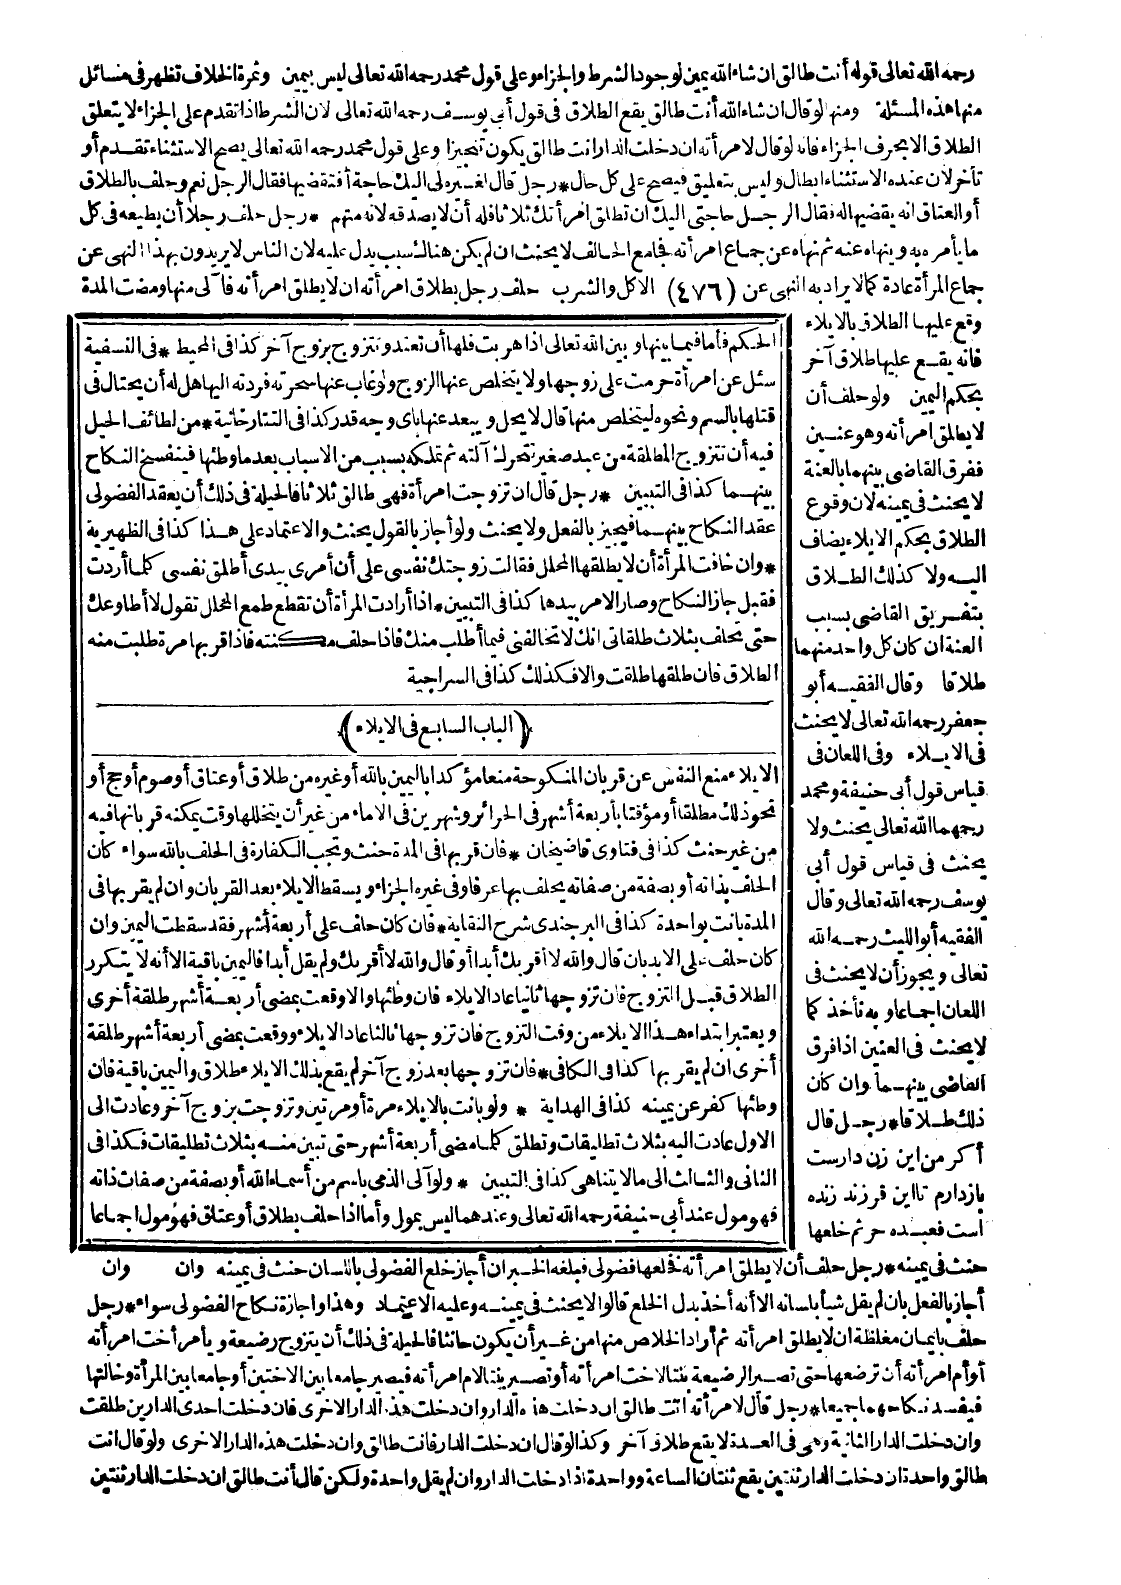 رحمه الله تعالى قوله أنت طالق ان شاء الله يمين لوجود الشرط والجزاء وعلى قول محمد رحمه الله تعالى ليس بيمين وثمرة الخلاف تظهر فى مسائل
منها هذه المسئلة ومنها لو قال ان شاء الله أنت طالق يقع الطلاق فى قول أبى يوسف رحمه الله تعالى لان الشرط اذا تقدم على الجزاء لا يتعلق
الطلاق الا بحرف الجزاء فانه لو قال لامرأته ان دخلت الدار انت طالق يكون تنجيزا وعلى قول محمد رحمه الله تعالى يصح الاستثناء تقدم أو
تأخر لان عنده الاستثناء ابطال وليس بتعليق فيصح على كل حال * رجل قال لغيره لى اليك حاجة أفتقضيها فقال الرجل نعم وحلف بالطلاق
أو العتاق انه يقضيها له فقال الرجل حاجتى اليك ان تطلق امرأتك ثلاثا فله أن لا يصدقه لانه متهم * رجل حلف رجلا أن يطيعه فى كل
ما يأمره به وينهاه عنه ثم نهاه عن جماع امرأته فجامع الحالف لا يحنث ان لم يكن هناك سبب يدل عليه لان الناس لا يريدون بهذا النهى عن
جماع المرأة عادة كما لا يراد به النهى عن (٤٧٦) الاكل والشرب حلف رجل بطلاق امرأته ان لا يطلق امرأته فآلى منها ومضت المدة
وقع عليها الطلاق بالايلاء
فانه يقع عليها طلاق آخر
بحكم اليمين ولو حلف أن
لا يطلق امرأته وهو عنين
ففرق القاضى بينهما بالعنة
لا يحنث فى يمينه لان وقوع
الطلاق بحكم الايلاء يضاف
اليه ولا كذلك الطلاق
بتفريق القاضى بسبب
العنة ان كان كل واحد منهما
طلاقا وقال الفقيه أبو
جعفر رحمه الله تعالى لا يحنث
فى الايلاء وفى اللعان فى
قياس قول أبى حنيفة ومحمد
رحمهما الله تعالى يحنث ولا
يحنث فى قياس قول أبى
يوسف رحمه الله تعالى وقال
الفقيه أبو الليث رحمه الله
تعالى ويجوز أن لا يحنث فى
اللعان اجماعا وبه نأخذ كما
لا يحنث فى العنين اذا فرق
القاضى بينهما وان كان
ذلك طلاقا * رجل قال
أكر من اين زن دارست
بازدارم تا اين فرزند زنده
است فعبده حر ثم خلعها
الحكم فأما فيما بينها وبين الله تعالى اذا هربت فلها أن تعتد وتتزوج بزوج آخر كذا فى المحيط * فى النسفية
سئل عن امرأة حرمت على زوجها ولا يتخلص عنها الزوج ولو غاب عنها سحرته فردته اليها هل له أن يحتال فى
قتلها بالسم ونحوه ليتخلص منها قال لا يحل ويبعد عنها باى وجه قدر كذا فى التتارخانية * من لطائف الحيل
فيه أن تتزوج المطلقة من عبد صغير تتحرك آلته ثم تملكه بسبب من الاسباب بعد ما وطئها فينفسخ النكاح
بينهما كذا فى التبيين * رجل قال ان تزوجت امرأة فهى طالق ثلاثا فالحيلة فى ذلك أن يعقد الفضولى
عقد النكاح بينهما فيجيز بالفعل ولا يحنث ولو أجاز بالقول يحنث والاعتماد على هذا كذا فى الظهيرية
* وان خافت المرأة أن لا يطلقها المحلل فقالت زوجتك نفسى على أن أمرى بيدى أطلق نفسى كلما أردت
فقبل جاز النكاح وصار الامر بيدها كذا فى التبيين * اذا أرادت المرأة أن تقطع طمع المحلل تقول لا أطاوعك
حتى تحلف بثلاث طلقاتى انك لا تخالفنى فيما أطلب منك فاذا حلف مكنته فاذا قربها مرة طلبت منه
الطلاق فان طلقها طلقت والا فكذلك كذا فى السراجية
(الباب السابع فى الايلاء)
الايلاء منع النفس عن قربان المنكوحة منعا مؤكدا باليمين بالله أو غيره من طلاق أو عتاق أو صوم أو حج أو
نحو ذلك مطلقا أو مؤقتا بأربعة أشهر فى الحرائر وشهرين فى الاماء من غير أن يتخللها وقت يمكنه قربانها فيه
من غير حنث كذا فى فتاوى قاضيخان * فان قربها فى المدة حنث وتجب الكفارة فى الحلف بالله سواء كان
الحلف بذاته أو بصفة من صفاته يحلف بها عرفا وفى غيره الجزاء ويسقط الايلاء بعد القربان وان لم يقربها فى
المدة بانت بواحدة كذا فى البرجندى شرح النقاية * فان كان حلف على أربعة أشهر فقد سقطت اليمين وان
كان حلف على الابد بان قال والله لا أقربك أبدا أو قال والله لا أقربك ولم يقل أبدا فاليمين باقية الا أنه لا يتكرر
الطلاق قبل التزوج فان تزوجها ثانيا عاد الايلاء فان وطئها والا وقعت بمضى أربعة أشهر طلقة أخرى
ويعتبر ابتداء هذا الايلاء من وقت التزوج فان تزوجها ثالثا عاد الايلاء ووقعت بمضى أربعة أشهر طلقة
أخرى ان لم يقربها كذا فى الكافى * فان تزوجها بعد زوج آخر لم يقع بذلك الايلاء طلاق واليمين باقية فان
وطئها كفر عن يمينه كذا فى الهداية * ولو بانت بالايلاء مرة أو مرتين وتزوجت بزوج آخر وعادت الى
الاول عادت اليه بثلاث تطليقات وتطلق كلما مضى أربعة أشهر حتى تبين منه بثلاث تطليقات فكذا فى
الثانى والثالث الى ما لا يتناهى كذا فى التبيين * ولو آلى الذمى باسم من أسماء الله أو بصفة من صفات ذاته
فهو مول عند أبى حنيفة رحمه الله تعالى وعندهما ليس بمول وأما اذا حلف بطلاق أو عتاق فهو مول اجماعا
حنث فى يمينه * رجل حلف أن لا يطلق امرأته فخلعها فضولى فبلغه الخبر ان أجاز خلع الفضولى باللسان حنث فى يمينه وان وان
أجاز بالفعل بان لم يقل شيأ بلسانه الا أنه أخذ بدل الخلع قالوا لا يحنث فى يمينه وعليه الاعتماد وهذا واجازة نكاح الفضولى سواء * رجل
حلف بايمان مغلظة ان لا يطلق امرأته ثم أراد الخلاص منها من غير أن يكون حانثا فالحيلة فى ذلك أن يتزوج رضيعة ويأمر أخت امرأته
أو أم امرأته أن ترضعها حتى تصير الرضيعة بنتا لاخت امرأته أو تصير بنتا لام امرأته فيصير جامعا بين الاختين أو جامعا بين المرأة وخالتها
فيفسد نكاحهما جميعا * رجل قال لامرأته انت طالق ان دخلت هذه الدار وان دخلت هذه الدار الاخرى فان دخلت احدى الدارين طلقت
وان دخلت الدار الثانية وهى فى العدة لا يقع طلاق آخر وكذا لو قال ان دخلت الدار فانت طالق وان دخلت هذه الدار الاخرى ولو قال انت
طالق واحدة ان دخلت الدار ثنتين يقع ثنتان الساعة وواحدة اذا دخلت الدار وان لم يقل واحدة ولكن قال أنت طالق ان دخلت الدار ثنتين